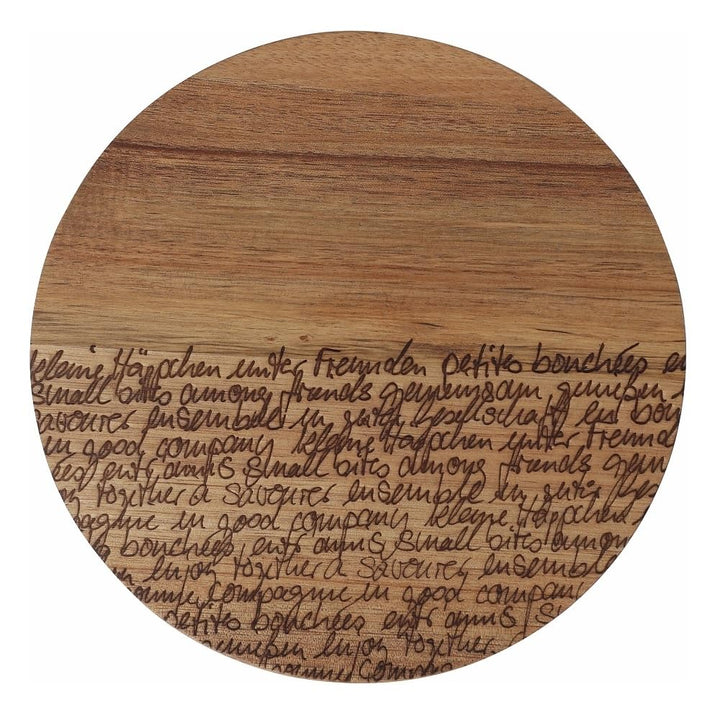 kleine Häppchen unter Freunden petites bouchées en
small bites among friends gemeinsam genießen
savourer ensemble in guter Gesellschaft en bon
in good company kleine Häppchen unter Freunde
bées entr amis small bites among friends gem
joy together à savourer ensemble in guter Ges
pagnie in good company kleine Häppchen
s bouchées, entr amis, small bites amon
en enjoy together à savourer ensemble
onne compagnie in good company
petites bouchées entr amis s
genießen enjoy together
bonne compa